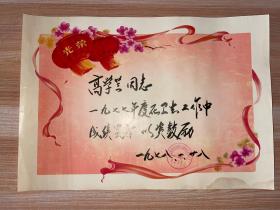 光荣
高学兰同志
一九七七年度在卫生工作中
成绩显著 以资鼓励
一九七八.一.十八